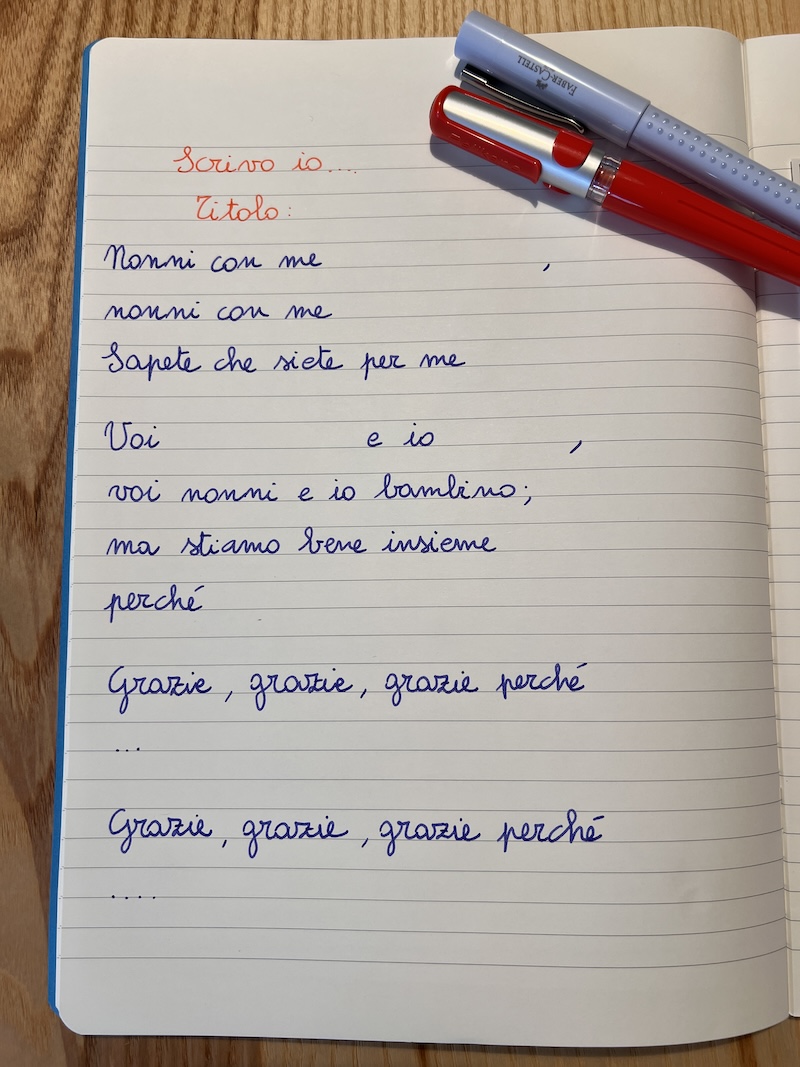 FABER-CASTELL
Scrivo io....
Titolo:
Nonni con me ,
nonni con me
Sapete che siete per me
Voi e io ,
voi nonni e io bambino;
ma stiamo bene insieme
perché
Grazie, grazie, grazie perché
...
Grazie, grazie, grazie perché
....